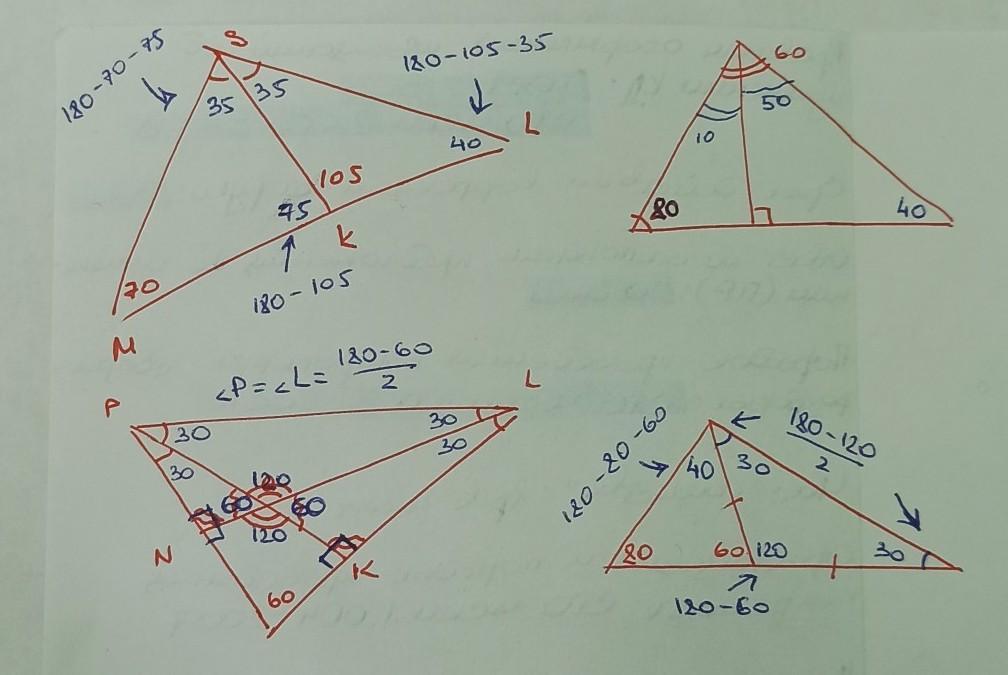 S
180-70-75
35
35
180-105-35
40
L
105
75
K
70
180-105
M
60
50
10
80
40
∠P=∠L= 180-60
2
P
L
30
30
30
30
120
60
60
120
N
K
60
180-80-60
180-120
2
40
30
80
60
120
30
180-60